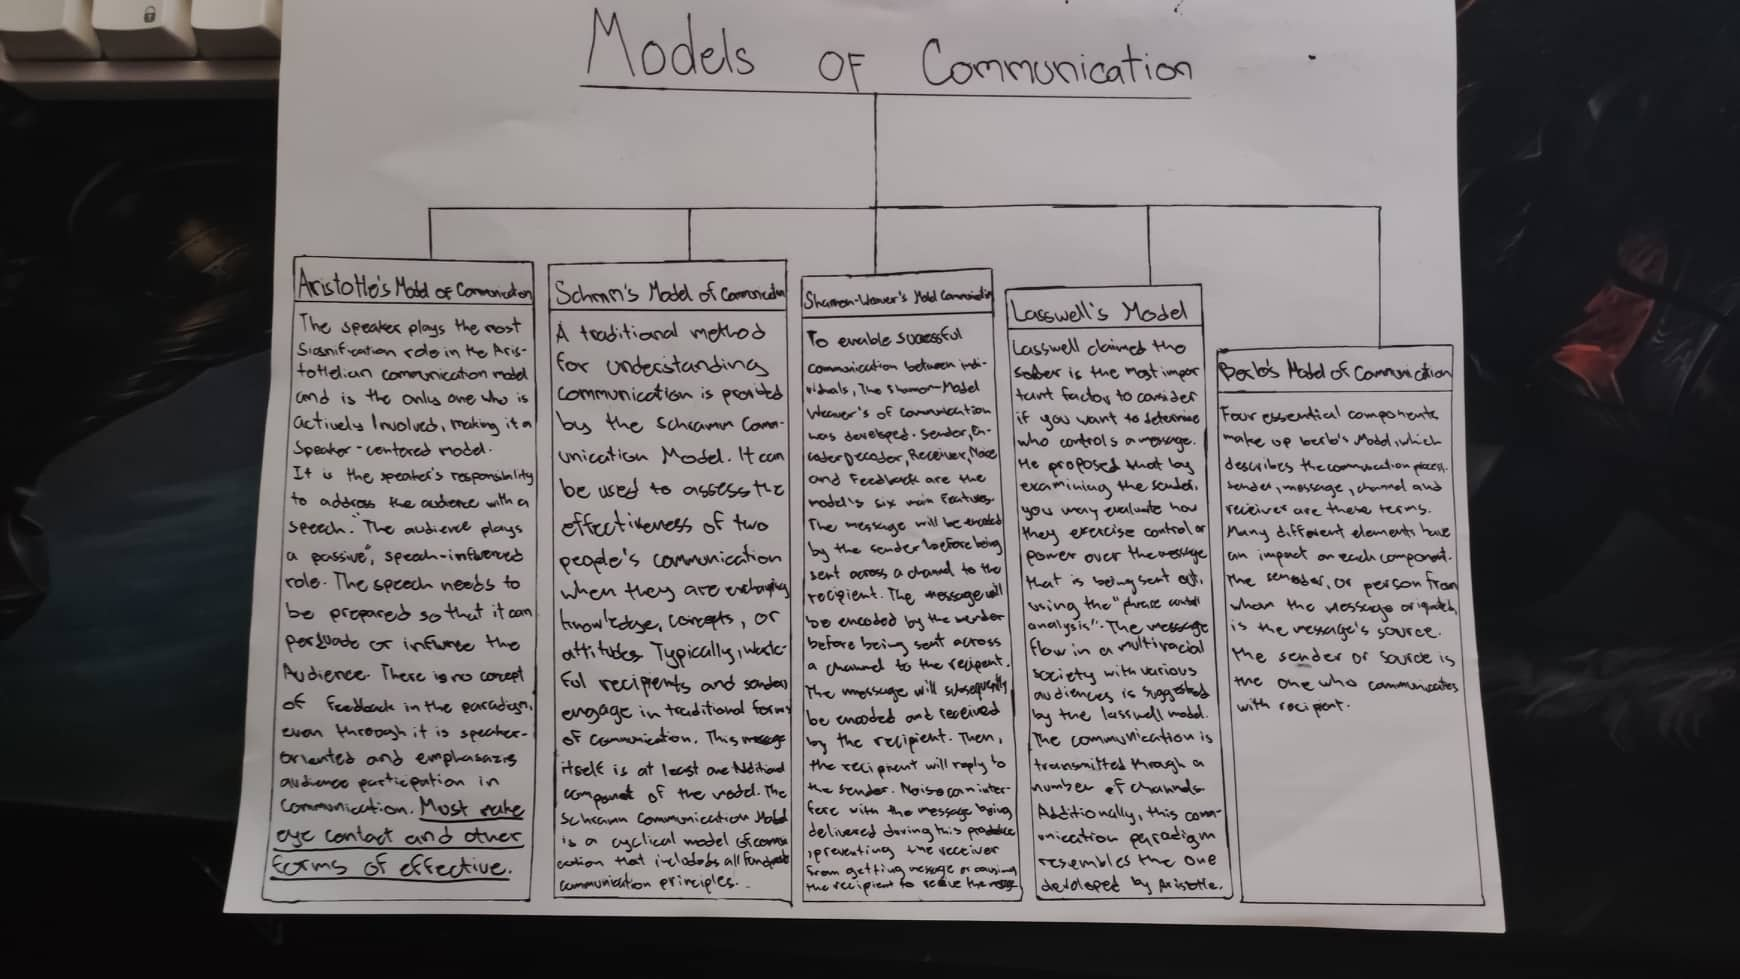 Models OF Communication
Aristotle's Model of Communication
The speaker plays the most
Siasnification role in the Aris-
totlelian communication model
and is the only one who is
actively Involved, making it a
Speaker-centered model.
It is the speaker's responsibility
to address the audience with a
speech. "The audience plays
a passive", speach-influenced
role. The speech needs to
be prepared so that it can
persuade or influnce the
Audience. There is no concept
of feedback in the paradigm,
even through it is speaker-
oriented and emphasazis
audience participation in
Communication. Must make
eye contact and other
forms of effective.
Schramm's Model of Communication
A traditional method
for understanding
communication is provided
by the Schramm Comm-
unication Model. It can
be used to assess the
effectiveness of two
people's communication
when they are exchanging
knowledge, concepts, or
attitudes. Typically,
ful recipients and senders
engage in traditional forms
of Communication. This message
itself is at least one Additional
component of the model. The
Schramm Communication Model
is a cyclical model of comm
cation that includes all
communication principles.
Shannon-Weaver's Model
To enable successful
communication between indi-
viduals, The Shannon-Model
Weaver's of communication
was developed. Sender, En-
coder, Decoder, Receiver, Noise
and Feedback are the
model's six main Features.
The message will be encoded
by the sender before being
sent across a channel to the
recipient. The message will
be encoded by the sender
before being sent across
a channel to the recipent.
The message will subsequently
be encoded and received
by the recipient. Then,
the recipient will reply to
the sender. Noise can inter-
fere with the message being
delivered during this
, preventing the receiver
from getting message or causing
the recipient to the
Lasswell's Model
Lasswell claimed the
sender is the most impor
tant factor to consider
if you want to determine
who controls a message.
He proposed that by
examining the sender,
you may evaluate how
they exercise control or
power over the message
that is being sent out,
using the "phrase control
analysis". The message
flow in a multiracial
society with various
audiences is suggested
by the lasswell model.
The communication is
transmitted through a
number of channels
Additionally, this comm-
unication paradigm
resembles the one
developed by Aristotle.
Berlo's Model of Communication
Four essential components
make up berlo's Model, which
describes the communication process.
Sender, message, channel and
receiver are these terms.
Many different elements have
an impact on each component.
The sender, or person from
whom the message originated,
is the message's source.
The sender or source is
the one who communicates
with recipient.